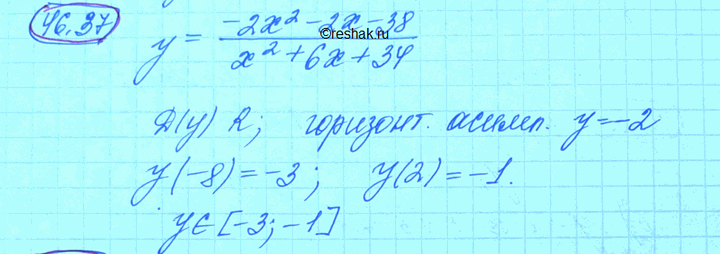 46.37
y = \frac{-2x² - 2x - 38}{x² + 6x + 34}
©reshak.ru
D(y) R; горизонт. асимп. y = -2
y(-8) = -3; y(2) = -1.
y ∈ [-3; -1]